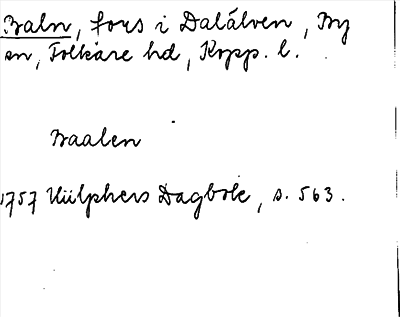 Baln, fors i Dalälven, By
sn, Folkare hd, Kopp. l.
Baalen
1757 Hülphers Dagbok, s. 563.